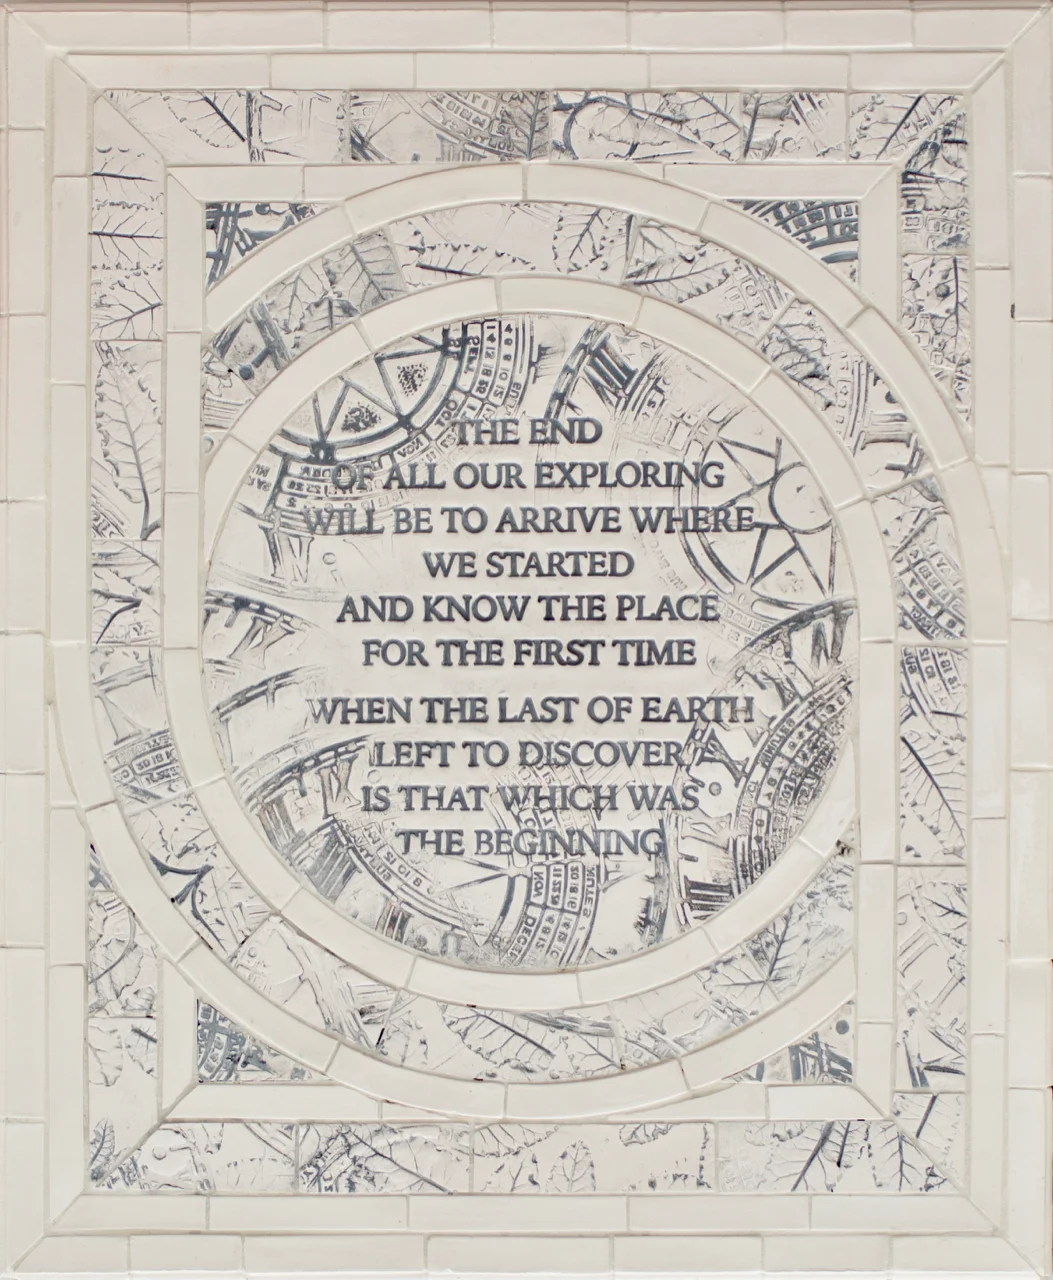 THE END
OF ALL OUR EXPLORING
WILL BE TO ARRIVE WHERE
WE STARTED
AND KNOW THE PLACE
FOR THE FIRST TIME
WHEN THE LAST OF EARTH
LEFT TO DISCOVER
IS THAT WHICH WAS
THE BEGINNING